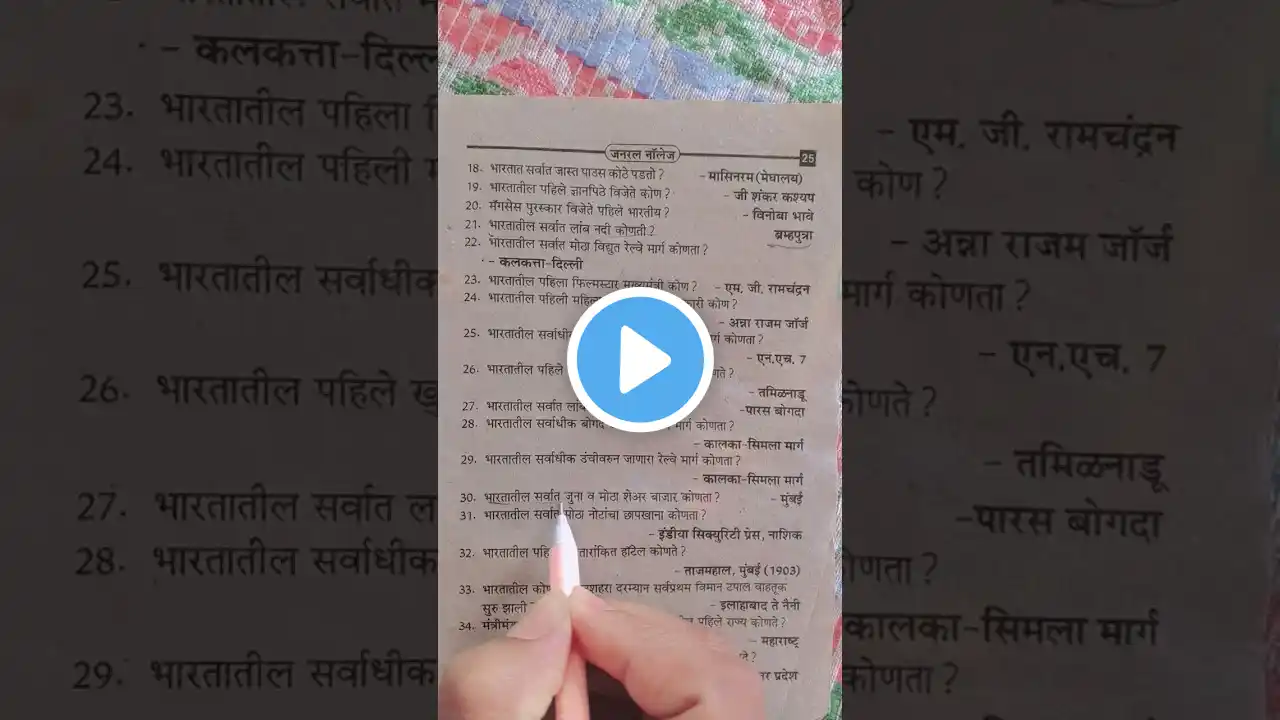 जनरल नॉलेज 25
18. भारतात सर्वात जास्त पाऊस कोठे पडतो ? - मासिनरम (मेघालय)
19. भारतातील पहिले ज्ञानपिठे विजेते कोण ? - जी शंकर कश्यप
20. मॅगसेस पुरस्कार विजेते पहिले भारतीय ? - विनोबा भावे
21. भारतातील सर्वात लांब नदी कोणती ? ब्रम्हपुत्रा
22. भारतातील सर्वात मोठा विद्युत रेल्वे मार्ग कोणता ?
- कलकत्ता-दिल्ली
23. भारतातील पहिला फिल्मस्टार मुख्यमंत्री कोण ? - एम. जी. रामचंद्रन
24. भारतातील पहिली कोण ?
- अन्ना राजम जॉर्ज
25. भारतातील सर्वाधीक मार्ग कोणता ?
- एन.एच. 7
26. भारतातील पहिले
- तमिळनाडू
27. भारतातील सर्वात -पारस बोगदा
28. भारतातील सर्वाधीक मार्ग कोणता ?
- कालका-सिमला मार्ग
29. भारतातील सर्वाधीक उंचीवरुन जाणारा रेल्वे मार्ग कोणता ?
- कालका-सिमला मार्ग
30. भारतातील सर्वात जुना व मोठा शेअर बाजार कोणता ? - मुंबई
31. भारतातील सर्वात मोठा नोटांचा छापखाना कोणता ?
- इंडीया सिक्युरिटी प्रेस, नाशिक
32. भारतातील हॉटेल कोणते ?
- ताजमहाल, मुंबई (1903)
33. भारतातील दरम्यान सर्वप्रथम विमान टपाल वाहतूक
सुरु झाली - इलाहाबाद ते नैनी
34. पहिले राज्य कोणते ?
- महाराष्ट्र
प्रदेश